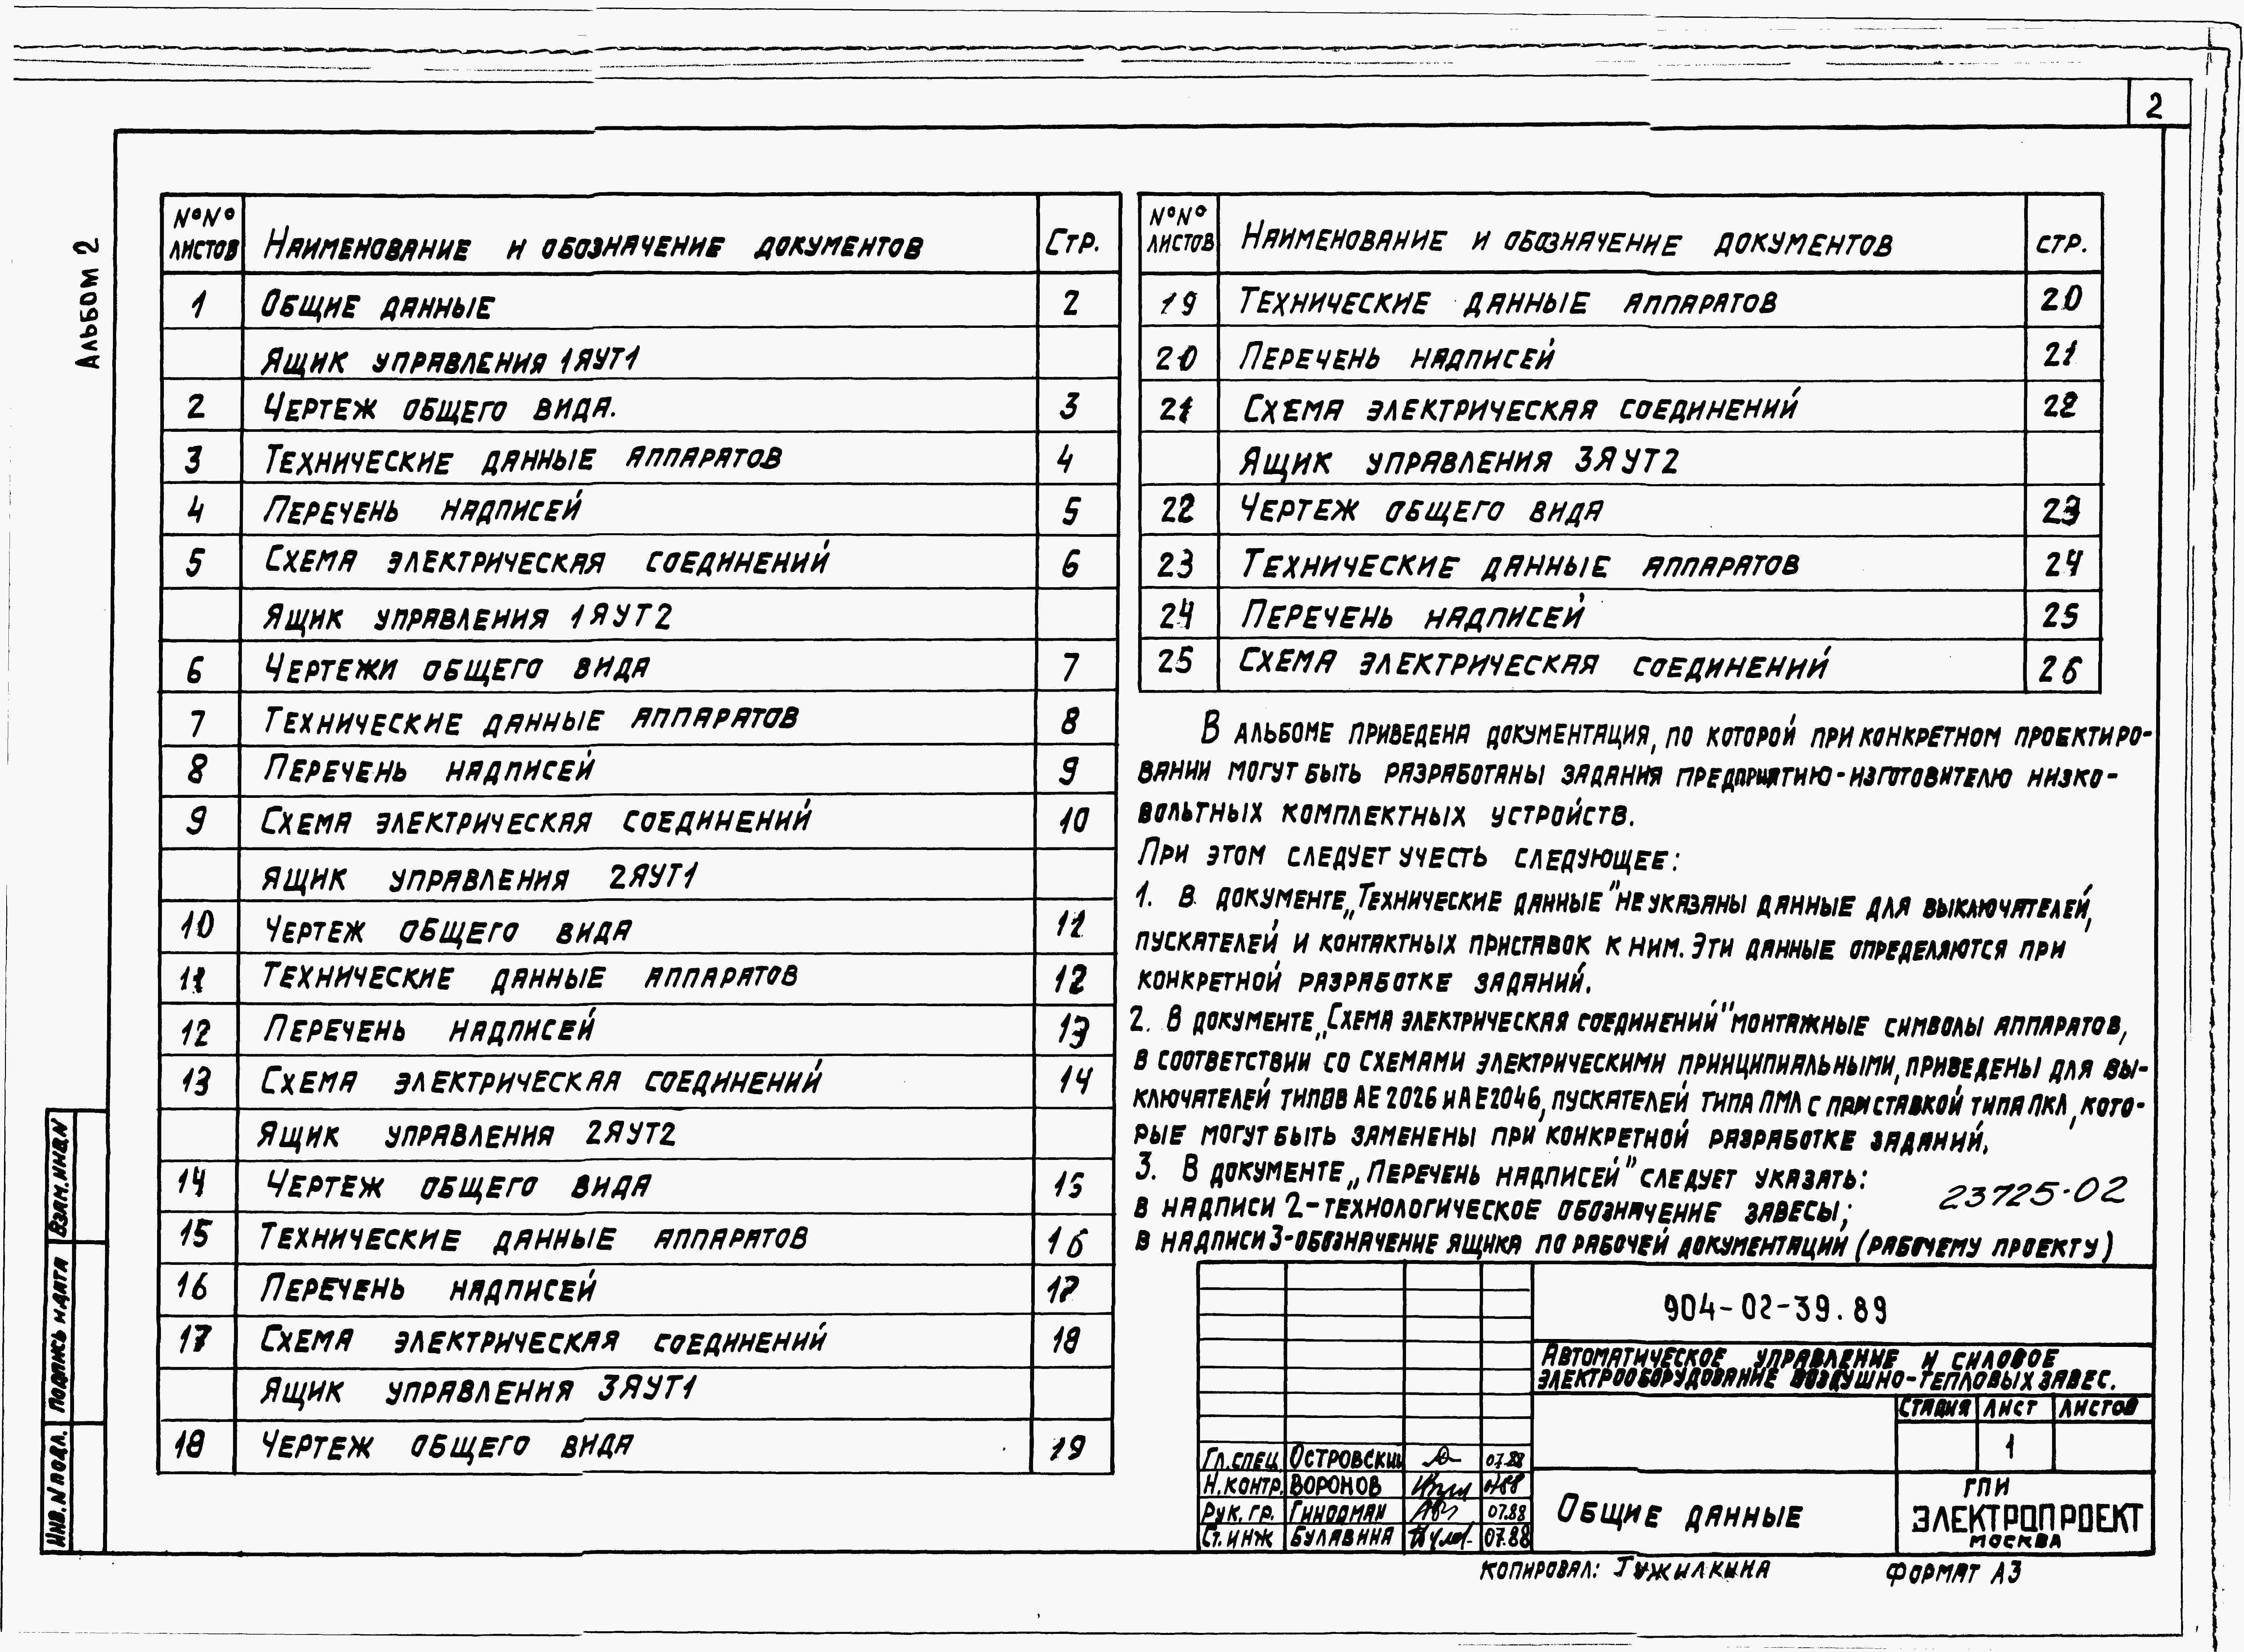 2
Альбом 2
№№ листов Наименование и обозначение документов Стр.
1 Общие данные 2
Ящик управления 1ЯУТ1
2 Чертеж общего вида. 3
3 Технические данные аппаратов 4
4 Перечень надписей 5
5 Схема электрическая соединений 6
Ящик управления 1ЯУТ2
6 Чертежи общего вида 7
7 Технические данные аппаратов 8
8 Перечень надписей 9
9 Схема электрическая соединений 10
Ящик управления 2ЯУТ1
10 Чертеж общего вида 11
11 Технические данные аппаратов 12
12 Перечень надписей 13
13 Схема электрическая соединений 14
Ящик управления 2ЯУТ2
14 Чертеж общего вида 15
15 Технические данные аппаратов 16
16 Перечень надписей 17
17 Схема электрическая соединений 18
Ящик управления 3ЯУТ1
18 Чертеж общего вида 19
№№ листов Наименование и обозначение документов стр.
19 Технические данные аппаратов 20
20 Перечень надписей 21
21 Схема электрическая соединений 22
Ящик управления 3ЯУТ2
22 Чертеж общего вида 23
23 Технические данные аппаратов 24
24 Перечень надписей 25
25 Схема электрическая соединений 26
В альбоме приведена документация, по которой при конкретном проектиро-
вании могут быть разработаны задания предприятию-изготовителю низко-
вольтных комплектных устройств.
При этом следует учесть следующее:
1. В документе „Технические данные" не указаны данные для выключателей,
пускателей и контактных приставок к ним. Эти данные определяются при
конкретной разработке заданий.
2. В документе „Схема электрическая соединений" монтажные символы аппаратов,
в соответствии со схемами электрическими принципиальными, приведены для вы-
ключателей типов АЕ2026 и АЕ2046, пускателей типа ПМЛ с приставкой типа ПКЛ, кото-
рые могут быть заменены при конкретной разработке заданий.
3. В документе „Перечень надписей" следует указать:
в надписи 2-технологическое обозначение завесы;
23725-02
в надписи 3-обозначение ящика по рабочей документации (рабочему проекту)
904-02-39.89
Автоматическое управление и силовое
электрооборудование воздушно-тепловых завес.
Стадия Лист Листов
1
Гл.спец. Островский 07.88
Н.контр. Воронов 07.88
Рук.гр. Гинодман 07.88
Ст.инж Булавина 07.88
Общие данные
ГПИ
ЭЛЕКТРОПРОЕКТ
Москва
Копировал: Тужилкина Формат А3
Взам.инв.N
Подпись и дата
Инв.N подл.